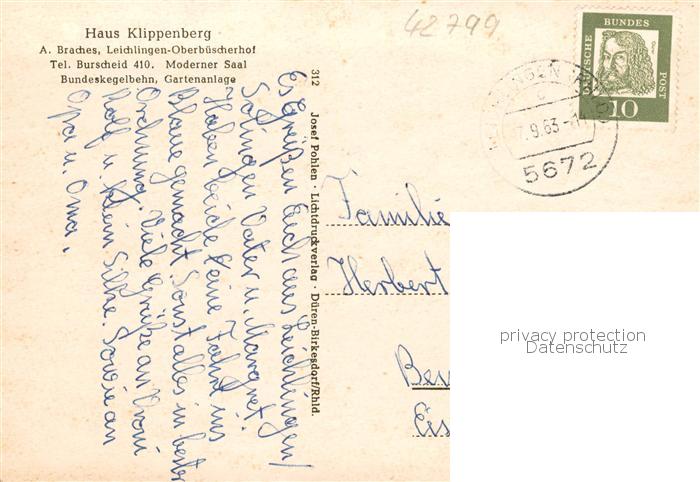 Haus Klippenberg
A. Braches, Leichlingen-Oberbüscherhof
Tel. Burscheid 410. Moderner Saal
Bundeskegelbahn, Gartenanlage
42799
DEUTSCHE BUNDES POST
10
7.9.63
5672
312 Josef Pohlen · Lichtdruckverlag · Düren-Birkesdorf/Rhld.
Es Grüßen Euch aus Leichlingen/
Solingen Vater u. Margret!
Haben beide keine Fahrt ins
Blaue gemacht. Sonst alles in bester
Ordnung. Viele Grüße an Vroni
Rolf u. klein Silke. Sowie an
Opa u. Oma.
Familie
Herbert
Eis
privacy protection
Datenschutz